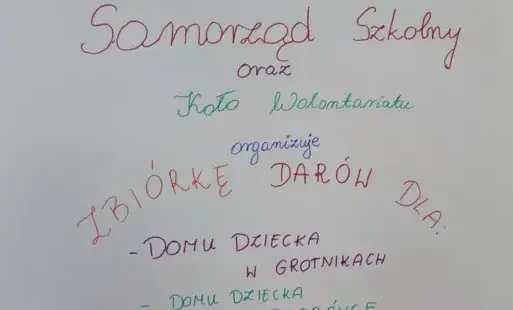 Samorząd Szkolny
oraz
Koło Wolontariatu
organizuje
ZBIÓRKĘ DARÓW DLA:
- DOMU DZIECKA
W GROTNIKACH
- DOMU DZIECKA